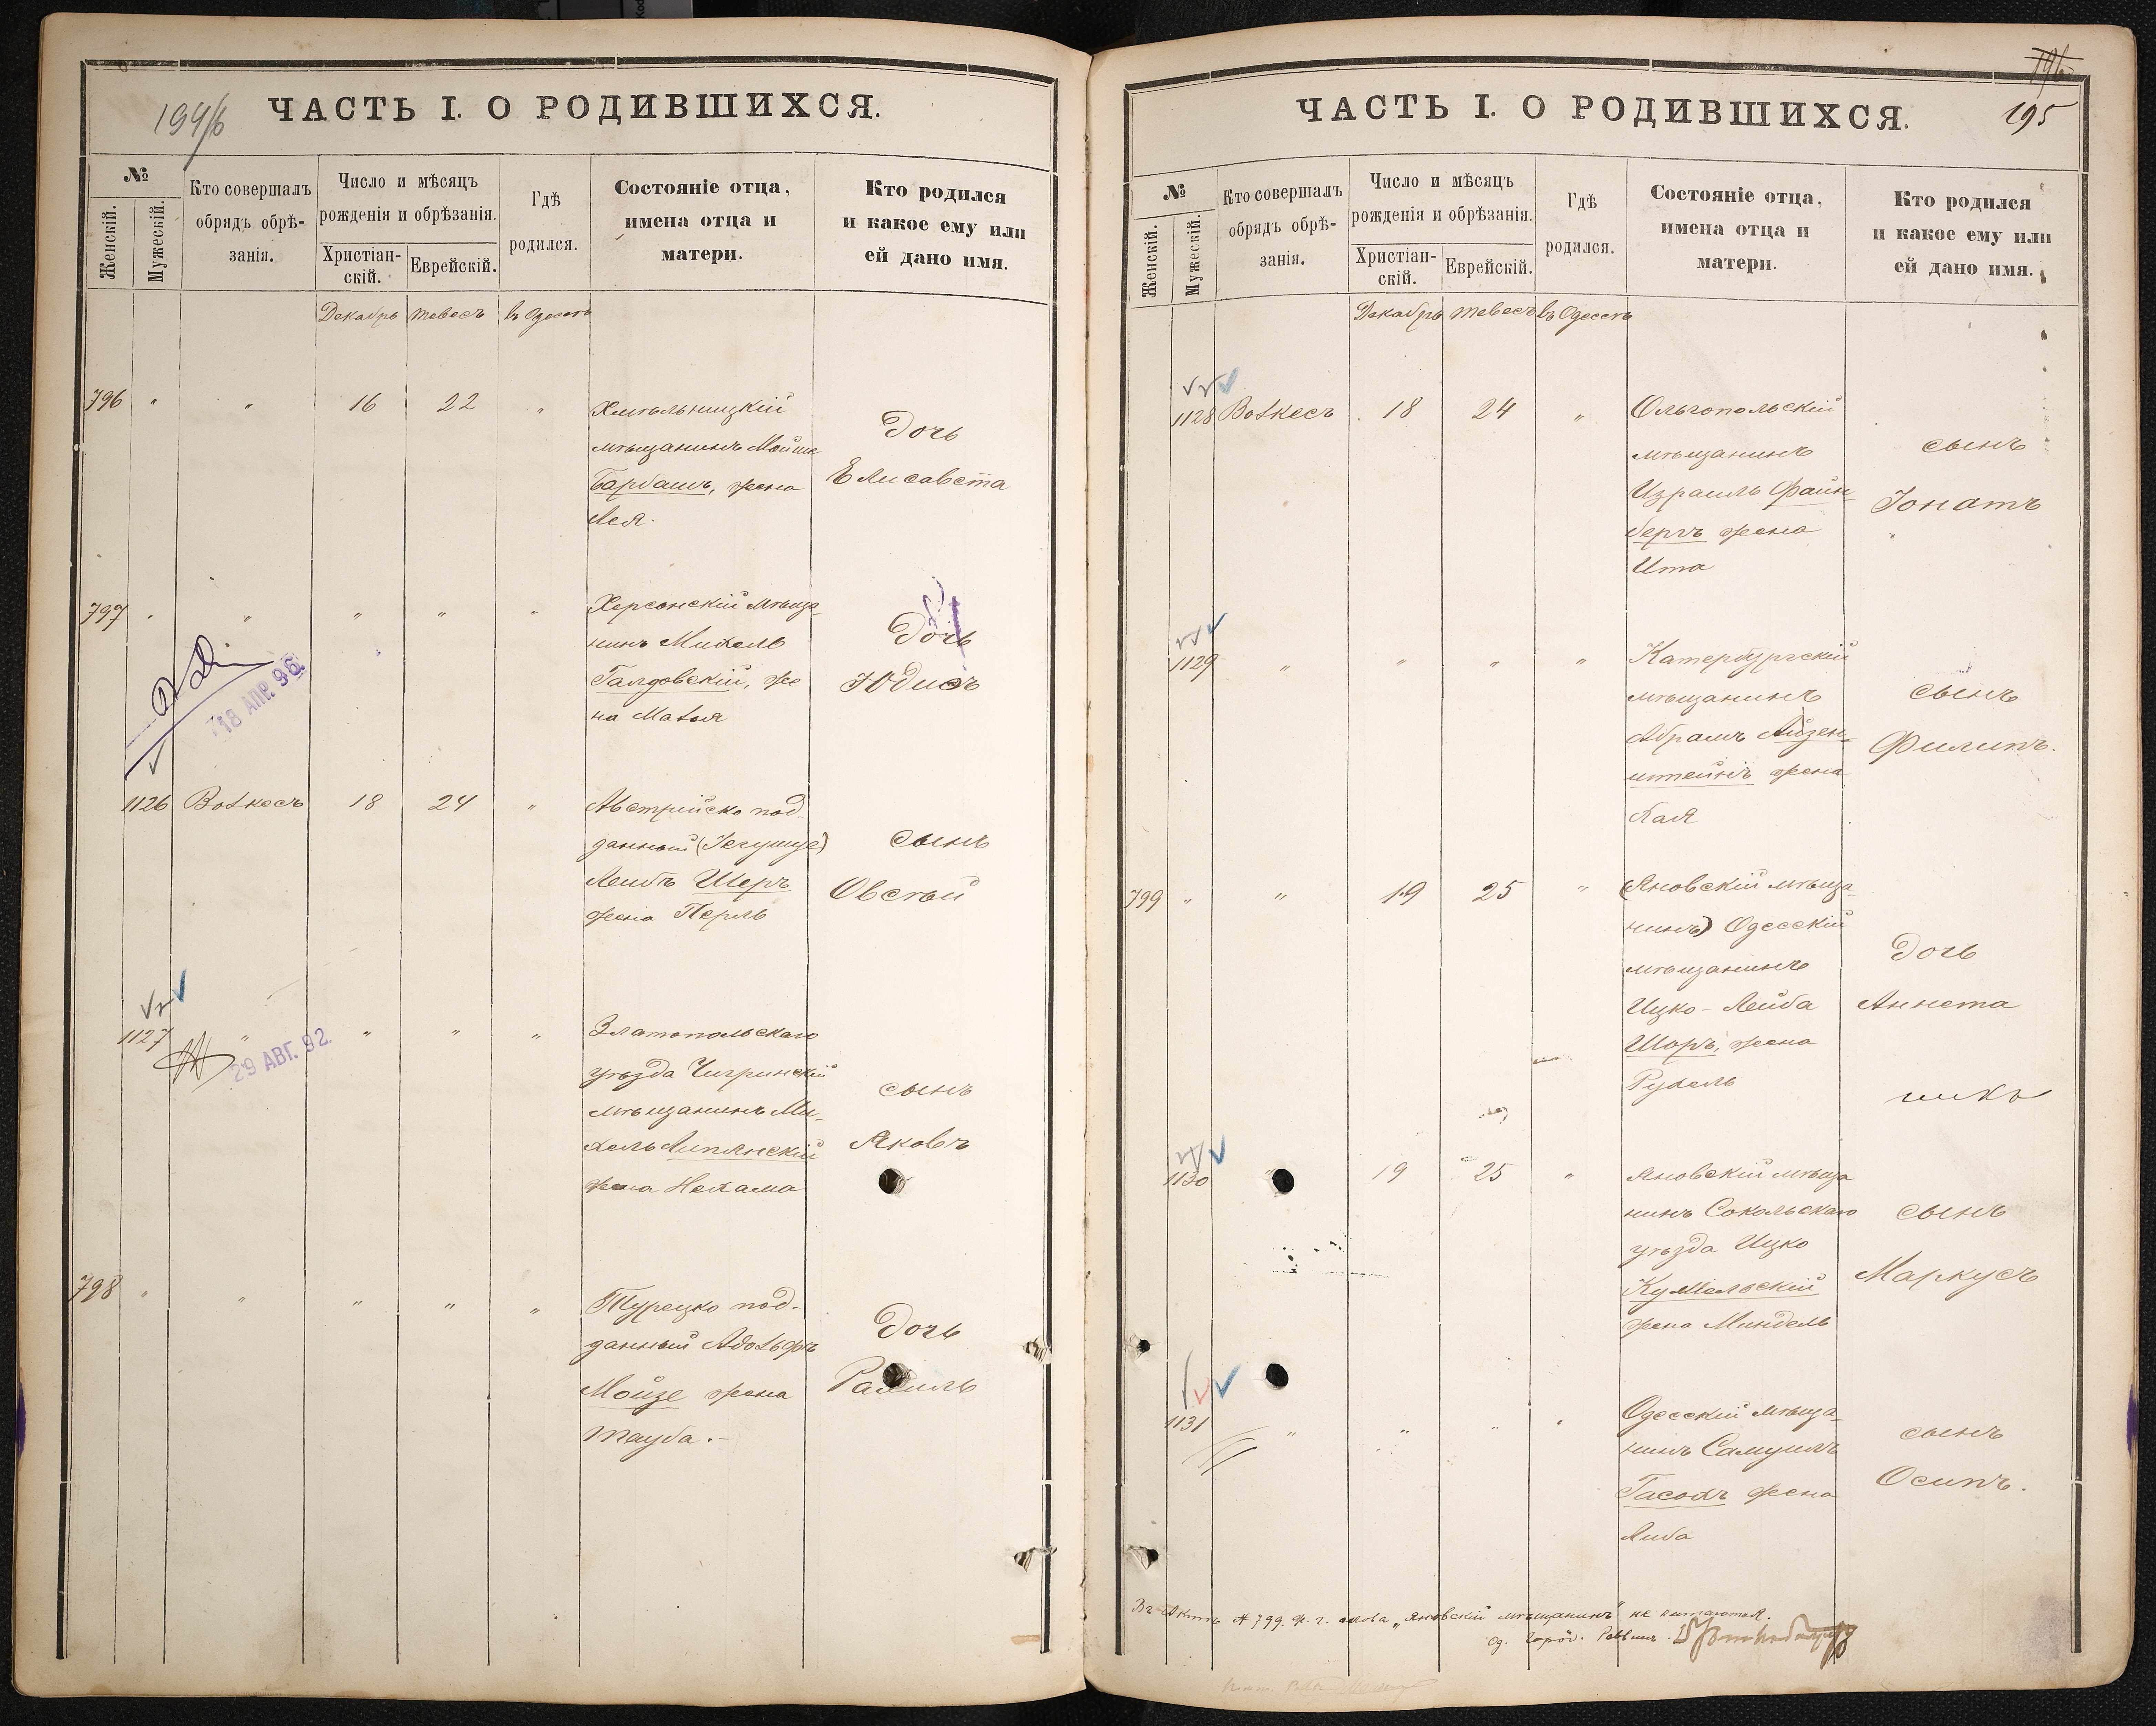 194/б
ЧАСТЬ I. О РОДИВШИХСЯ.
№
Женскій.
Мужескій.
Кто совершалъ
обрядъ обрѣ-
занія.
Число и мѣсяцъ
рожденія и обрѣзанія.
Христіан-
скій.
Еврейскій.
Гдѣ
родился.
Состояніе отца,
имена отца и
матери.
Кто родился
и какое ему или
ей дано имя.
Декабрь Тевесъ въ Одессѣ
796 " " 16 22 "
Хмѣльницкій
мѣщанинъ Мойше
Барбашъ, жена
Лея.
Дочь
Елисавета
797 " " " " "
Херсонскій мѣща-
нинъ Михель
Галдовскій, же
на Малья
Дочь
Юдисъ
18 АПР. 96
1126 Волкесъ 18 24 "
Австрійско под-
данный (Іегушуе)
Лейбъ Шеръ
жена Перль
сынъ
Овсѣй
1127 " " " "
29 АВГ. 92.
Златопольскаго
уѣзда Чигринскій
мѣщанинъ Ми-
хель Липянскій
жена Нехама
сынъ
Яковъ
798 " " " " "
Турецко под-
данный Адольфъ
Мойзе жена
Тауба.-
Дочь
Рахиль
196
195
ЧАСТЬ I. О РОДИВШИХСЯ.
№
Женскій.
Мужескій.
Кто совершалъ
обрядъ обрѣ-
занія.
Число и мѣсяцъ
рожденія и обрѣзанія.
Христіан-
скій.
Еврейскій.
Гдѣ
родился.
Состояніе отца,
имена отца и
матери.
Кто родился
и какое ему или
ей дано имя.
Декабрь Тевесъ въ Одессѣ
1128 Волкесъ 18 24 "
Ольгопольскій
мѣщанинъ
Израиль Файн-
бергъ жена
Ита
сынъ
Іонатъ
1129 " " " "
Катербургскій
мѣщанинъ
Абрамъ Айзен-
штейнъ жена
Бая
сынъ
Филипъ.
799 " " 19 25 "
(Яновскій мѣща-
нинъ) Одесскій
мѣщанинъ
Ицко-Лейба
Шоръ, жена
Рухель
Дочь
Аннета
1130 " 19 25 "
Яновскій мѣща
нинъ Сокольскаго
уѣзда Ицко
Кумельскій
жена Миндель
сынъ
Маркусъ
1131 " " " "
Одесскій мѣща-
нинъ Самуилъ
Гасохъ жена
Либа
сынъ
Осипъ.
Въ актѣ № 799 ж. г. слова „Яновскій мѣщанинъ" не читаются.
Од. Город. Раввинъ